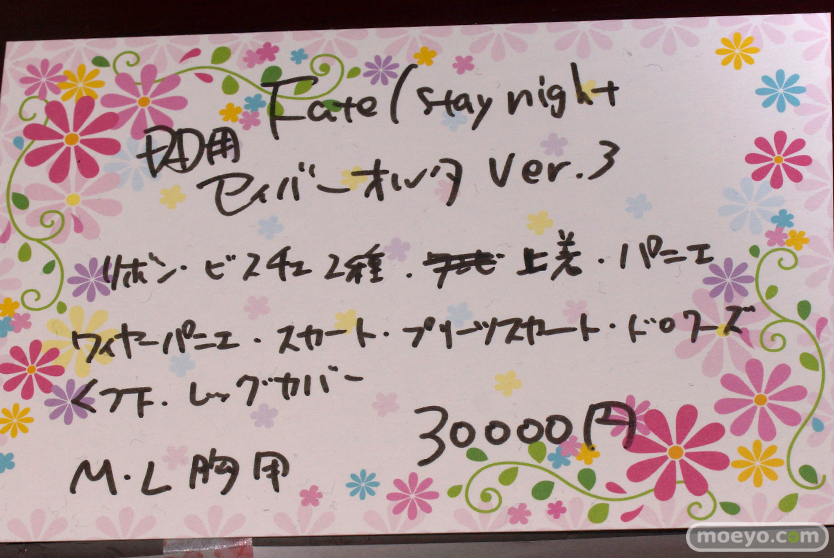 Fate/stay night
DD用
セイバーオルタ Ver.3
リボン・ビスチェ2種・上着・パニエ
ワイヤーパニエ・スカート・プリーツスカート・ドロワーズ
くつ下・レッグカバー
30000円
M・L胸用
moeyo.com